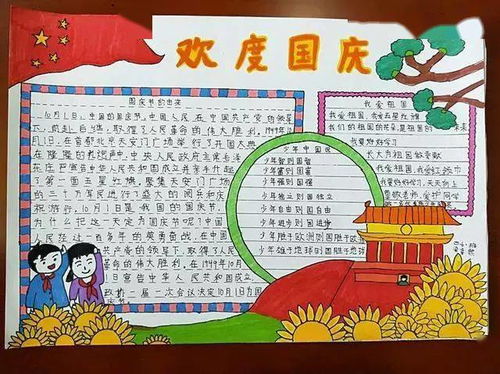 欢度国庆
国庆节的由来
10月1日,中国的国庆节,中国人民在中国共产党的领导
下,前赴后继,取得了人民革命的伟大胜利。1949年10
月1日,在首都北京天安门广场举行了开国大典
在隆隆的礼炮声中,中央人民政府主席毛泽
东庄严宣告中华人民共和国成立并亲手升起
了第一面五星红旗。聚集天安门广场
的三十万军民进行了盛大的阅兵和庆
祝游行。10月1日是我国的国庆节。
为什么把这一天定为国庆节呢?中国
人民经过一百多年的英勇奋战,在中国
共产党的领导下,取得了人民
革命的伟大胜利,在1949年10月
1日宣告中华人民共和国
政协一届一次会议决定10月1日为国
少年中国说
少年智则国智
少年富则国富
少年强则国强
少年独立则国独立
少年自由则国自由
少年进步则国进步
少年胜于欧洲则国胜于欧
少年雄于地球则国
我爱祖国
我爱祖国,我爱五星红旗
我们的祖国的花朵,是祖国的未来
我要好好学习
长大为祖国做贡献
我爱祖国,我爱红领巾
我要好好学习,天天向上
尊敬老师,爱护同学